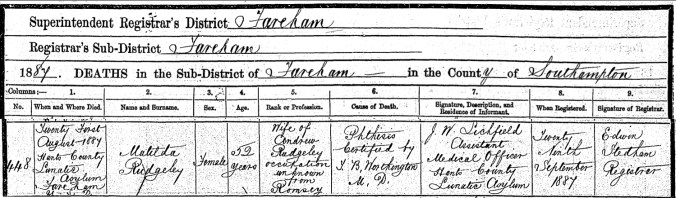 Superintendent Registrar's District Fareham
Registrar's Sub-District Fareham
1887. DEATHS in the Sub-District of Fareham in the County of Southampton
Columns:— 1. 2. 3. 4. 5. 6. 7. 8. 9.
No. When and Where Died. Name and Surname. Sex. Age. Rank or Profession. Cause of Death. Signature, Description, and Residence of Informant. When Registered. Signature of Registrar.
448
Twenty First
August 1887
Hants County
Lunatic
Asylum
Fareham
Matilda
Rudgeley
Female
52
years
Wife of
Andrew
Rudgeley
occupation
unknown
from
Romsey
Phthisis
Certified by
T. B. Worthington
M. D.
J. W. Lichfield
Assistant
Medical Officer
Hants County
Lunatic Asylum
Twenty
Ninth
September
1887
Edwin
Stedham
Registrar